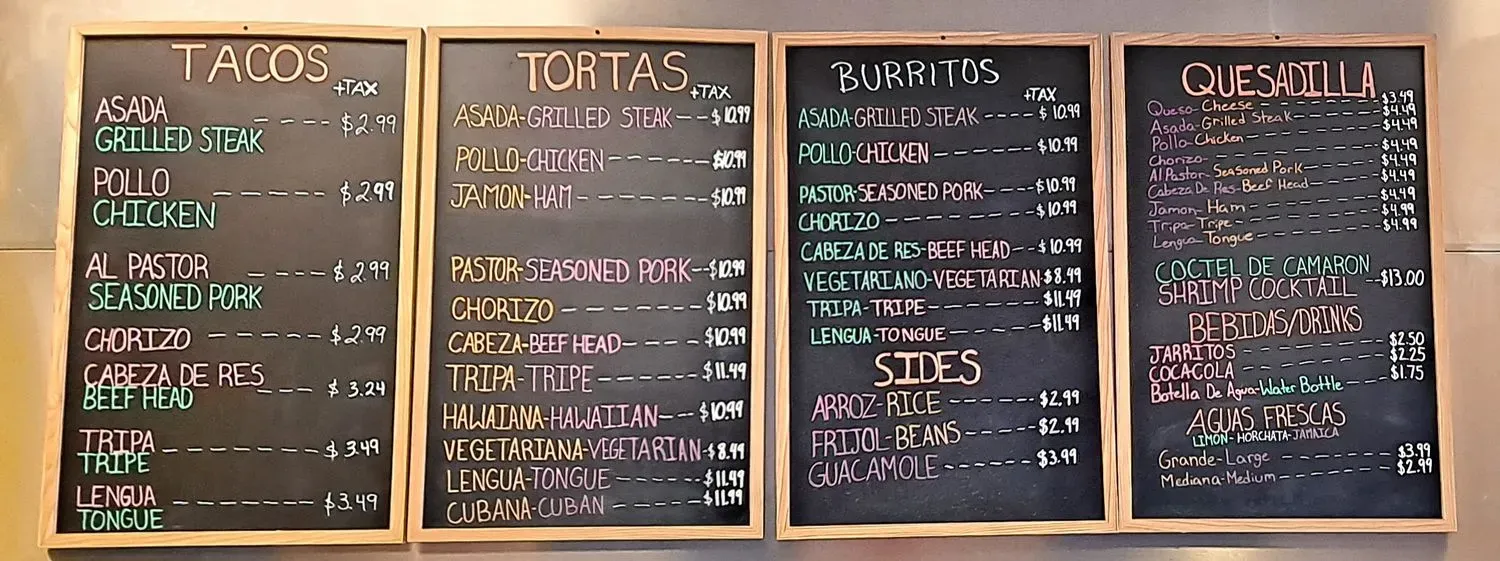 TACOS
+TAX
ASADA
GRILLED STEAK ---- $2.99
POLLO
CHICKEN ------ $2.99
AL PASTOR
SEASONED PORK ---- $2.99
CHORIZO ------- $2.99
CABEZA DE RES
BEEF HEAD --- $3.24
TRIPA
TRIPE -------- $3.49
LENGUA
TONGUE ------- $3.49
TORTAS
+TAX
ASADA-GRILLED STEAK-- $10.99
POLLO-CHICKEN ------- $10.99
JAMON-HAM --------- $10.99
PASTOR-SEASONED PORK--$10.99
CHORIZO --------- $10.99
CABEZA-BEEF HEAD ----$10.99
TRIPA-TRIPE ------ $11.49
HAWAIANA-HAWAIIAN--- $10.99
VEGETARIANA-VEGETARIAN-$8.49
LENGUA-TONGUE ------$11.49
CUBANA-CUBAN ------ $11.99
BURRITOS
+TAX
ASADA-GRILLED STEAK ---- $10.99
POLLO-CHICKEN ------- $10.99
PASTOR-SEASONED PORK---- $10.99
CHORIZO --------- $10.99
CABEZA DE RES-BEEF HEAD--$10.99
VEGETARIANO-VEGETARIAN-$8.49
TRIPA-TRIPE ------- $11.49
LENGUA-TONGUE ------ $11.49
SIDES
ARROZ-RICE ------ $2.99
FRIJOL-BEANS ----- $2.99
GUACAMOLE ------ $3.99
QUESADILLA
Queso-Cheese -------- $3.49
Asada-Grilled Steak----- $4.49
Pollo-Chicken -------- $4.49
Chorizo- ---------- $4.49
Al Pastor-Seasoned Pork ---- $4.49
Cabeza De Res-Beef Head---- $4.49
Jamon-Ham --------- $4.49
Tripa-Tripe --------- $4.99
Lengua-Tongue ------- $4.99
COCTEL DE CAMARON
SHRIMP COCKTAIL --$13.00
BEBIDAS/DRINKS
JARRITOS -------- $2.50
COCA-COLA -------- $2.25
Botella De Agua-Water Bottle --- $1.75
AGUAS FRESCAS
LIMON-HORCHATA-JAMAICA
Grande-Large ------- $3.99
Mediana-Medium ------- $2.99